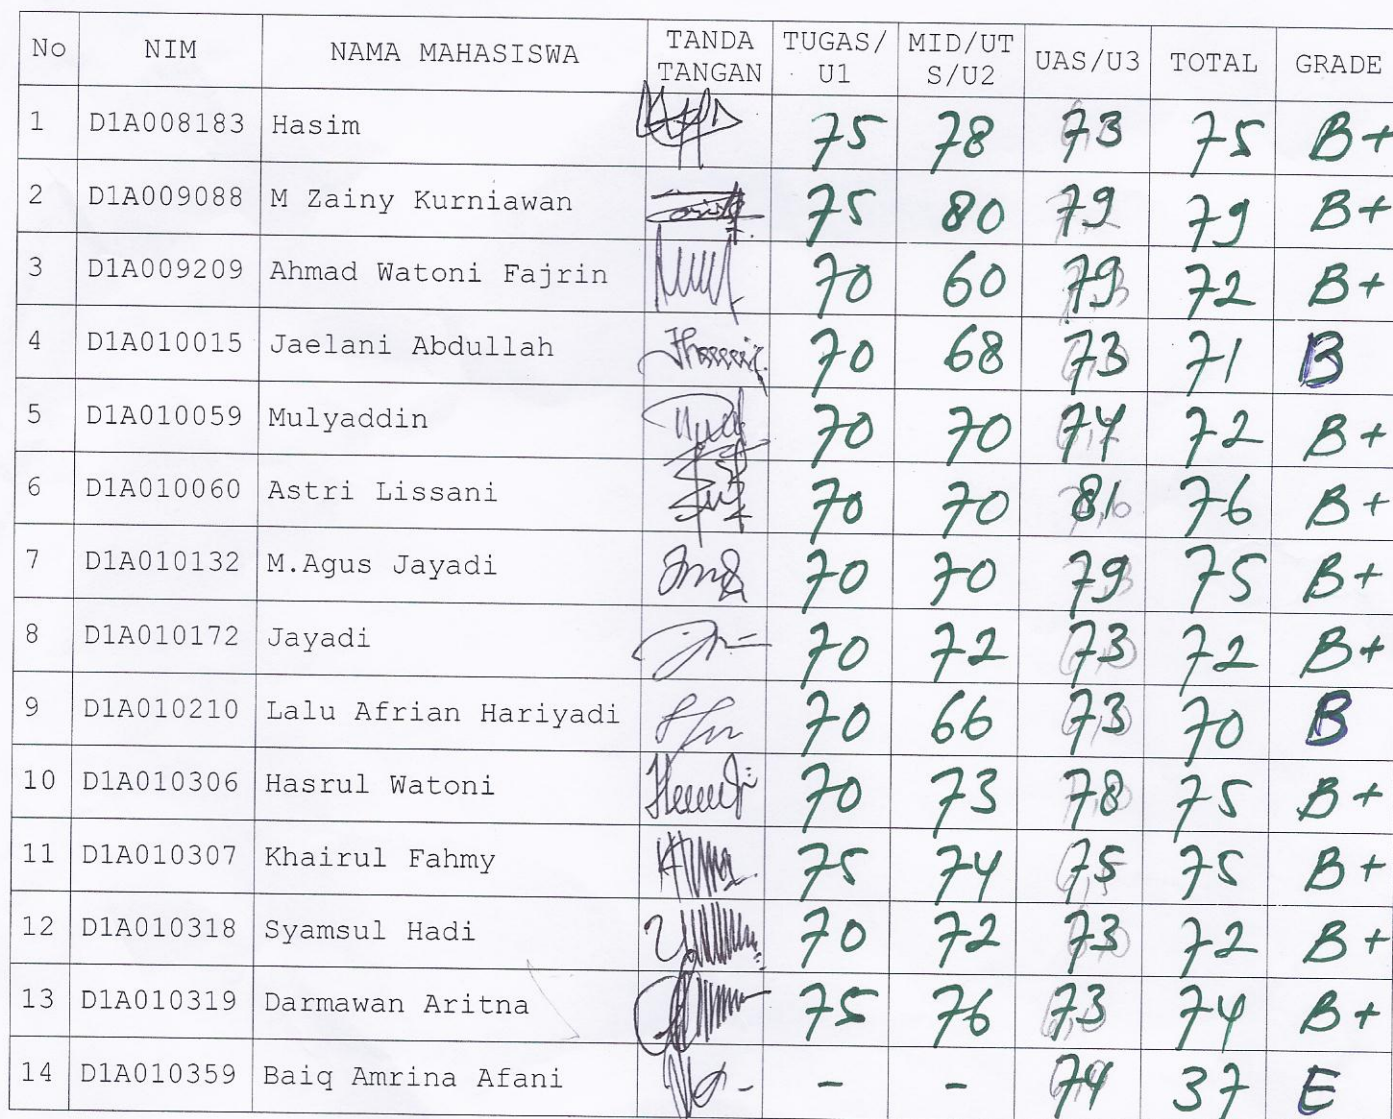 No NIM NAMA MAHASISWA TANDA TANGAN TUGAS/U1 MID/UTS/U2 UAS/U3 TOTAL GRADE
1 D1A008183 Hasim 75 78 73 75 B+
2 D1A009088 M Zainy Kurniawan 75 80 79 79 B+
3 D1A009209 Ahmad Watoni Fajrin 70 60 79 72 B+
4 D1A010015 Jaelani Abdullah 70 68 73 71 B
5 D1A010059 Mulyaddin 70 70 74 72 B+
6 D1A010060 Astri Lissani 70 70 81 76 B+
7 D1A010132 M.Agus Jayadi 70 70 79 75 B+
8 D1A010172 Jayadi 70 72 73 72 B+
9 D1A010210 Lalu Afrian Hariyadi 70 66 73 70 B
10 D1A010306 Hasrul Watoni 70 73 78 75 B+
11 D1A010307 Khairul Fahmy 75 74 75 75 B+
12 D1A010318 Syamsul Hadi 70 72 73 72 B+
13 D1A010319 Darmawan Aritna 75 76 73 74 B+
14 D1A010359 Baiq Amrina Afani - - 74 37 E